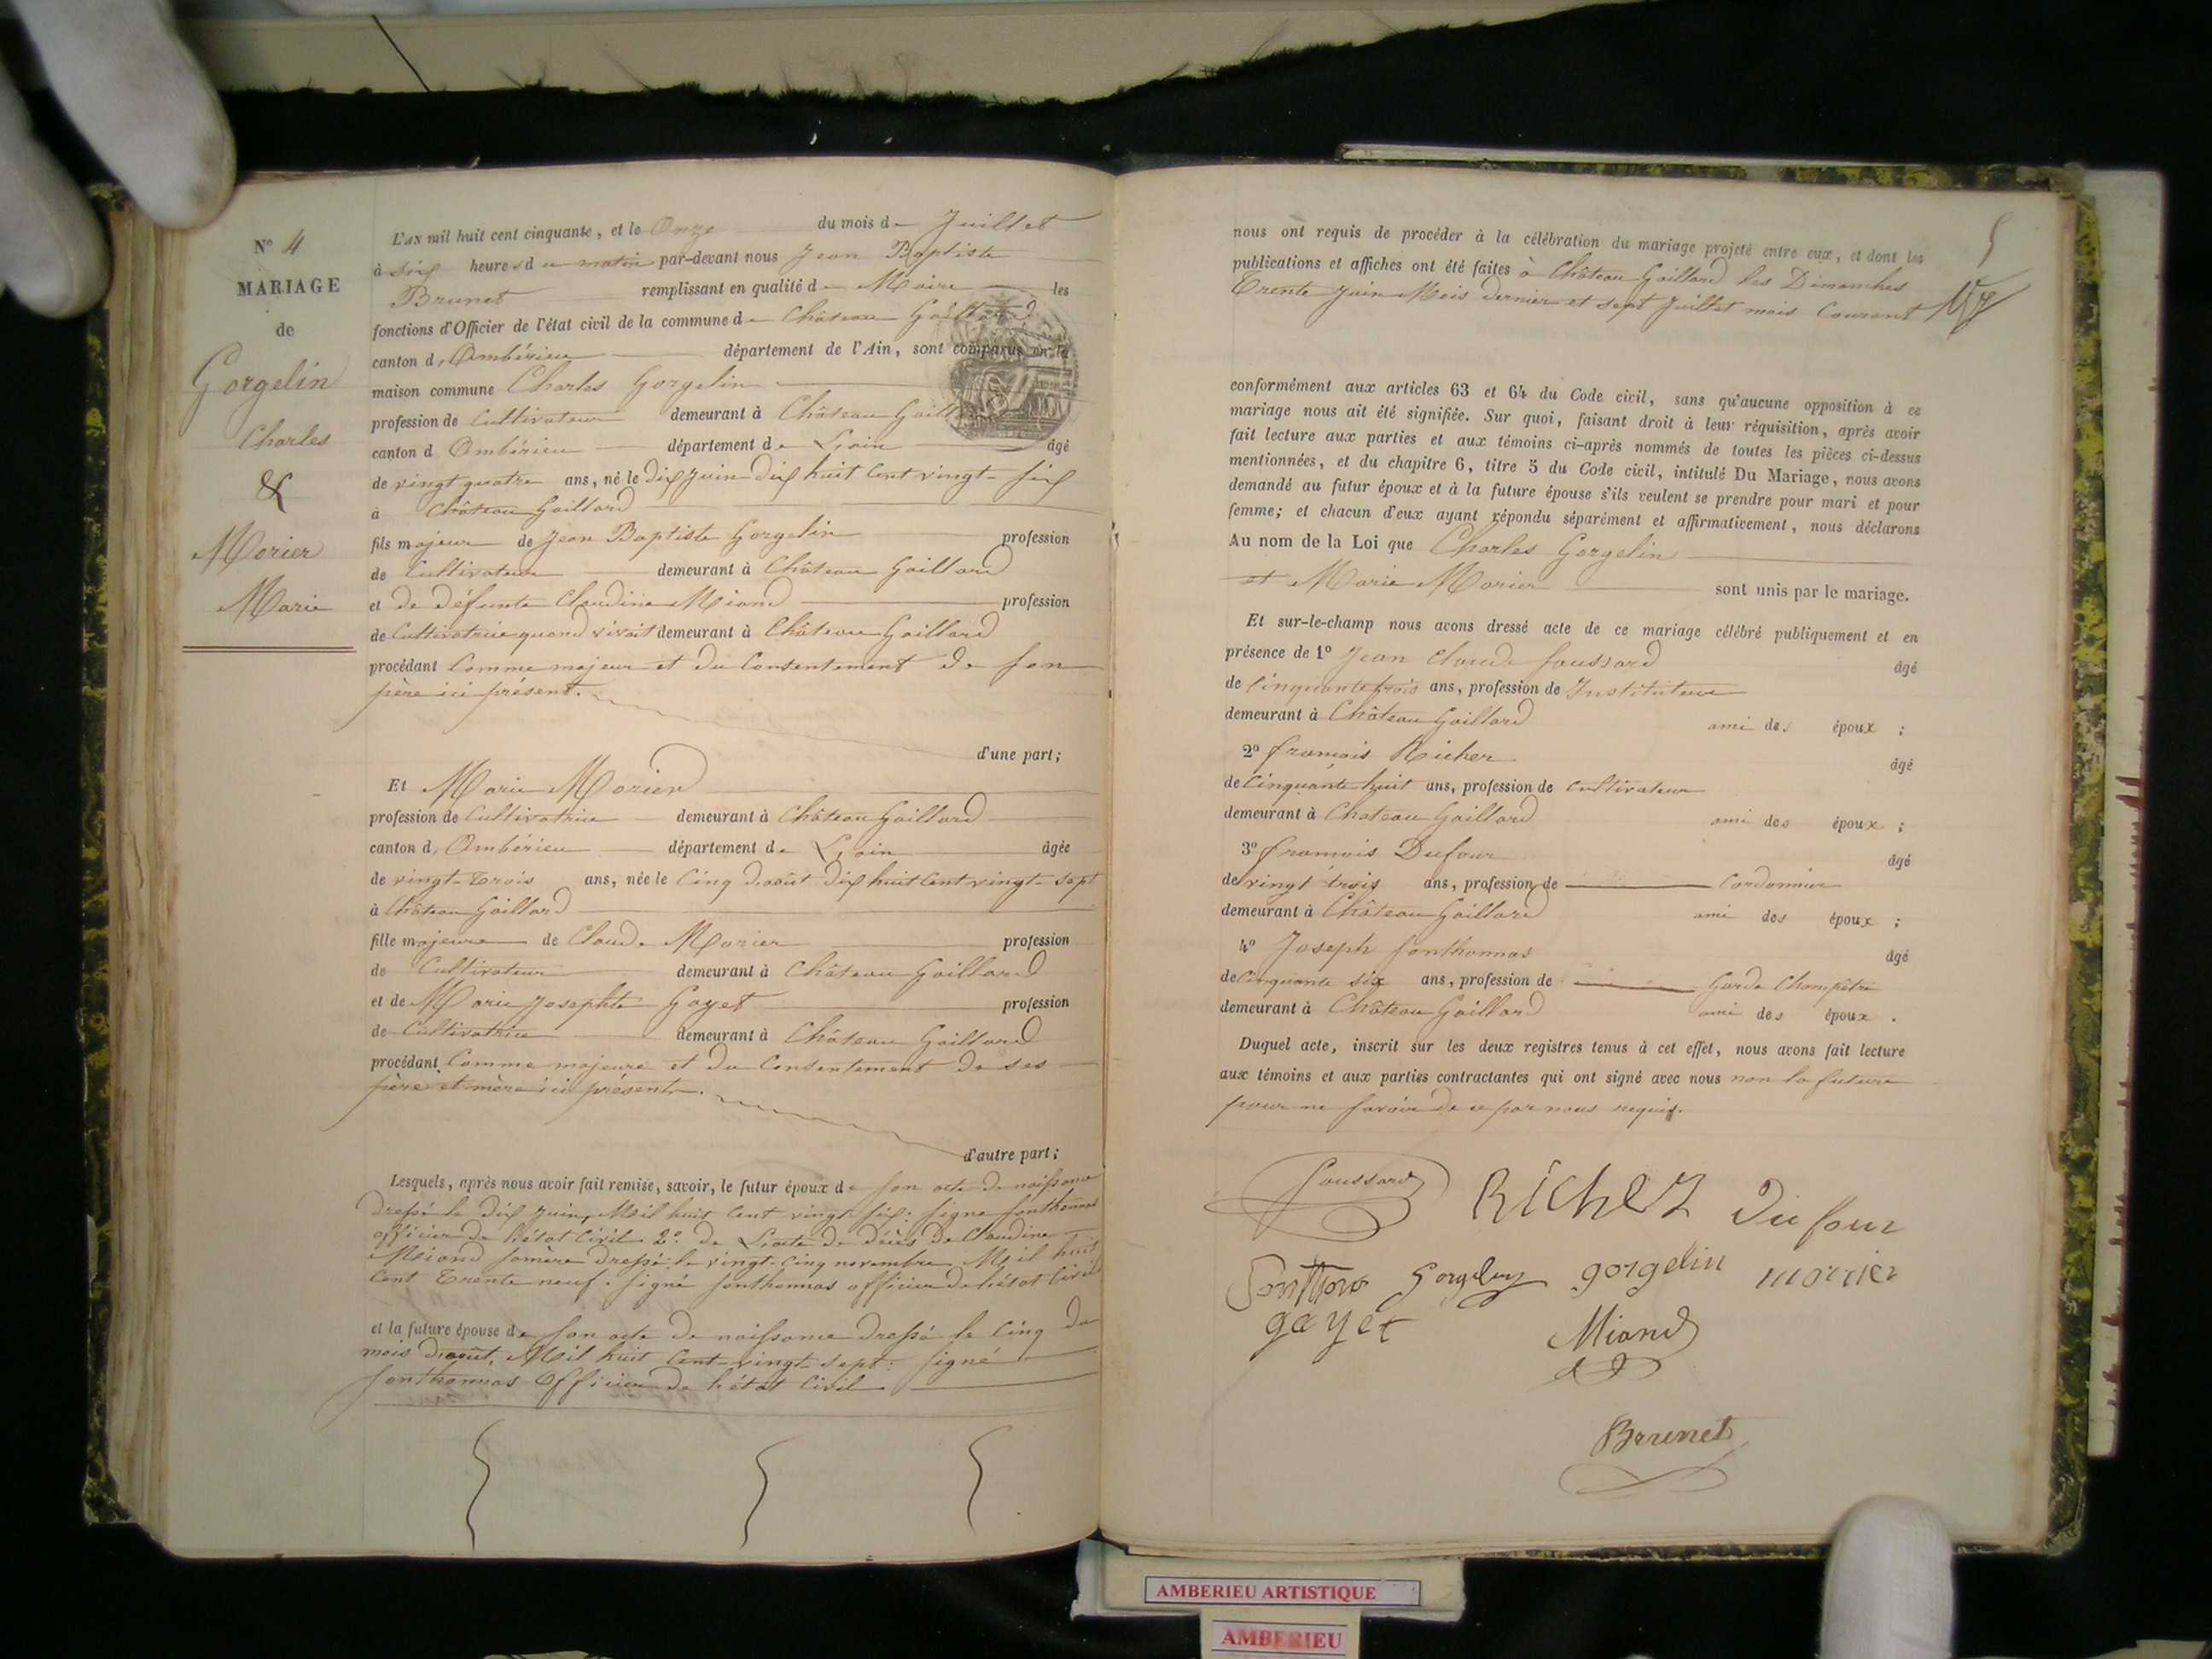 N° 4
MARIAGE
de
Gorgelin
Charles
&
Morier
Marie
L'an mil huit cent cinquante, et le Onze du mois de Juillet
à six heures du matin par-devant nous Jean Baptiste
Brunet remplissant en qualité de Maire les
fonctions d'Officier de l'état civil de la commune de Château Gaillard
canton d'Ambérieu département de l'Ain, sont comparus en la
maison commune Charles Gorgelin
profession de Cultivateur demeurant à Château Gaillard
canton d'Ambérieu département de L'ain âgé
de vingt quatre ans, né le dix Juin dix huit Cent vingt-six
à Château Gaillard
fils majeur de Jean Baptiste Gorgelin profession
de Cultivateur demeurant à Château Gaillard
et de défunte Claudine Miand profession
de Cultivatrice quand vivait demeurant à Château Gaillard
procédant Comme majeur et du Consentement de son
père ici présent.
d'une part;
Et Marie Morier
profession de Cultivatrice demeurant à Château Gaillard
canton d'Ambérieu département de L'ain âgée
de vingt-trois ans, née le Cinq d'août dix huit Cent vingt-sept
à Château Gaillard
fille majeure de Claude Morier profession
de Cultivateur demeurant à Château Gaillard
et de Marie Josephte Gayet profession
de Cultivatrice demeurant à Château Gaillard
procédant Comme majeure et du Consentement de ses
père et mère ici présents.
d'autre part;
Lesquels, après nous avoir fait remise, savoir, le futur époux de son acte de naissance
dressé le dix Juin, Mil huit Cent vingt six: signé fonthonnas
officier de l'état Civil 2° de L'acte de décès de Claudine
Miand sa mère dressé le vingt-Cinq novembre Mil huit
Cent Trente neuf. signé fonthonnas officier de l'état Civil
et la future épouse de son acte de naissance dressé le Cinq du
mois d'août, Mil huit Cent-vingt-sept: signé
fonthonnas Officier de l'état Civil
nous ont requis de procéder à la célébration du mariage projeté entre eux, et dont les
publications et affiches ont été faites à Château Gaillard les Dimanches
Trente Juin Mois dernier et sept Juillet mois Courant
conformément aux articles 63 et 64 du Code civil, sans qu'aucune opposition à ce
mariage nous ait été signifiée. Sur quoi, faisant droit à leur réquisition, après avoir
fait lecture aux parties et aux témoins ci-après nommés de toutes les pièces ci-dessus
mentionnées, et du chapitre 6, titre 5 du Code civil, intitulé Du Mariage, nous avons
demandé au futur époux et à la future épouse s'ils veulent se prendre pour mari et pour
femme; et chacun d'eux ayant répondu séparément et affirmativement, nous déclarons
Au nom de la Loi que Charles Gorgelin
et Marie Morier sont unis par le mariage.
Et sur-le-champ nous avons dressé acte de ce mariage célébré publiquement et en
présence de 1° Jean Claude foussard âgé
de Cinquante trois ans, profession de Instituteur
demeurant à Château Gaillard ami des époux ;
2° françois Richer âgé
de Cinquante huit ans, profession de Cultivateur
demeurant à Château Gaillard ami des époux ;
3° françois Dufour âgé
de vingt trois ans, profession de Cordonnier
demeurant à Château Gaillard ami des époux ;
4° Joseph fonthonnas âgé
de Cinquante six ans, profession de Garde Champêtre
demeurant à Château Gaillard ami des époux .
Duquel acte, inscrit sur les deux registres tenus à cet effet, nous avons fait lecture
aux témoins et aux parties contractantes qui ont signé avec nous non la future
pour ne savoir de ce par nous requis.
foussard Richer Dufour
gorgelin morier
gayet Miand
Brunet
AMBERIEU ARTISTIQUE
AMBERIEU